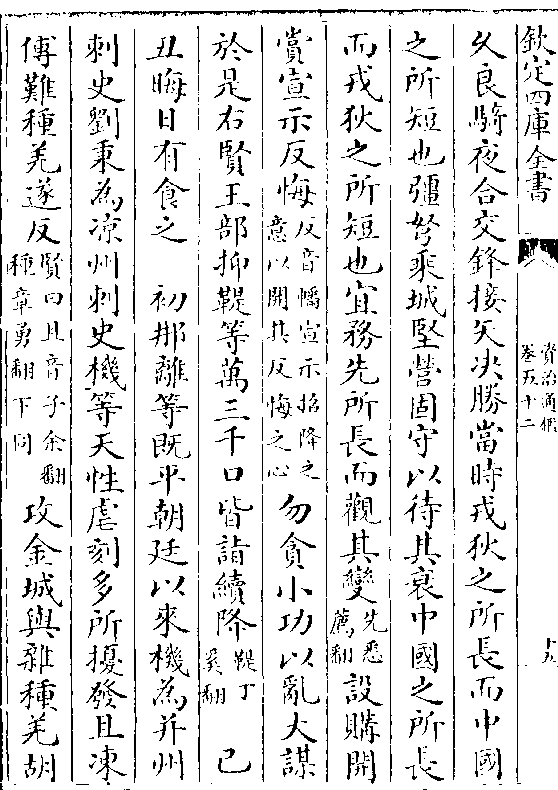 欽定四庫全書
資治通鑑
卷五十二
十五
久良騎夜合交鋒接矢决勝當時戎狄之所長而中國
之所短也彊弩乘城堅營固守以待其衰中國之所長
而戎狄之所短也宜務先所長而觀其變先悉薦翻設購開
賞宣示反悔反音幡宣示招降之意以開其反悔之心勿貪小功以亂大謀
於是右賢王部抑鞮等萬三千口皆詣續降鞮丁奚翻 已
丑晦日有食之 初那離等既平朝廷以來機為并州
刺史劉秉為凉州刺史機等天性虐刻多所擾發且凍
傅難種羌遂反賢曰且音子余翻種章勇翻下同攻金城與雜種羌胡